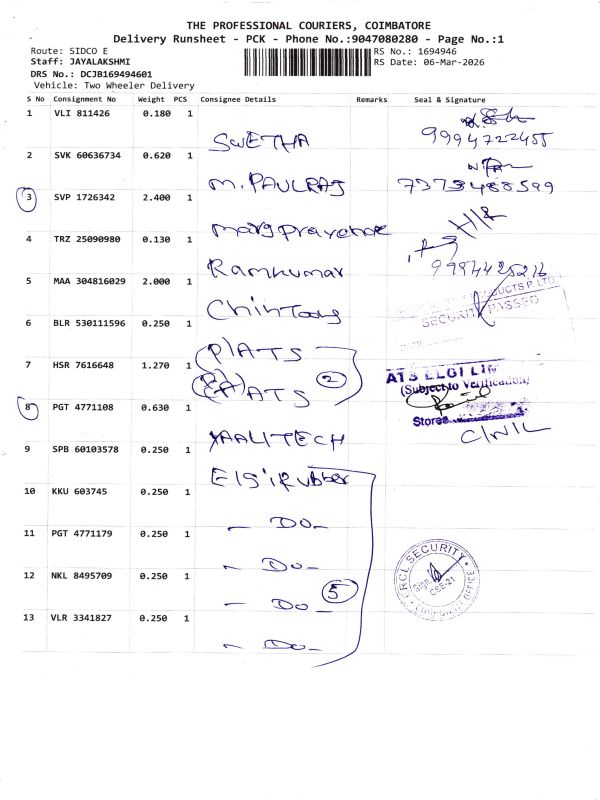 THE PROFESSIONAL COURIERS, COIMBATORE
Delivery Runsheet - PCK - Phone No.:9047080280 - Page No.:1
Route: SIDCO E
RS No.: 1694946
Staff: JAYALAKSHMI
RS Date: 06-Mar-2026
DRS No.: DCJB169494601
Vehicle: Two Wheeler Delivery
S No Consignment No Weight PCS Consignee Details Remarks Seal & Signature
1 VLI 811426 0.180 1
SWETHA 9994722455
2 SVK 60636734 0.620 1
M. PAULRAJ 7373488599
3 SVP 1726342 2.400 1
4 TRZ 25090980 0.130 1
Ramkumar
5 MAA 304816029 2.000 1
SECURITY PASSED
6 BLR 530111596 0.250 1
P/ATS
7 HSR 7616648 1.270 1
ATS ELGI
(Subject to Verification)
ATS 2
8 PGT 4771108 0.630 1
Stores
AALITECH
9 SPB 60103578 0.250 1
Elgi Rubber
10 KKU 603745 0.250 1
- Do -
11 PGT 4771179 0.250 1
- Do -
12 NKL 8495709 0.250 1
- Do - 5
RCL SECURITY
Sign.
CBE-21
13 VLR 3341827 0.250 1
- Do -